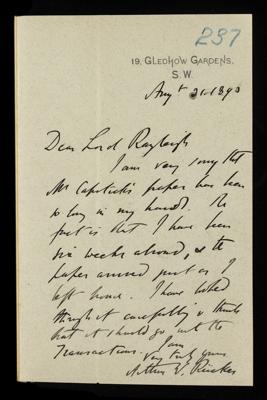 237
19, GLEDHOW GARDENS,
S.W.
Augt 21. 1893
Dear Lord Rayleigh
I am very sorry that
Mr Capstick's paper has been
so long in my hands. The
fact is that I have been
six weeks abroad, & the
paper arrived just as I
left home. I have looked
through it carefully & think
that it should go into the
Transactions. I am
Very truly yours
Arthur W. Rücker